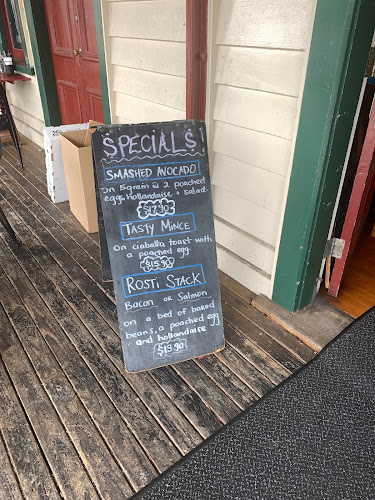 SPECIALS!
SMASHED AVOCADO
on 5grain & 2 poached
eggs, hollandaise + salad
$17.90
TASTY MINCE
on ciabatta toast with
a poached egg
$15.90
ROSTI STACK
Bacon or Salmon
on a bed of baked
beans, a poached egg
and hollandaise
$19.90